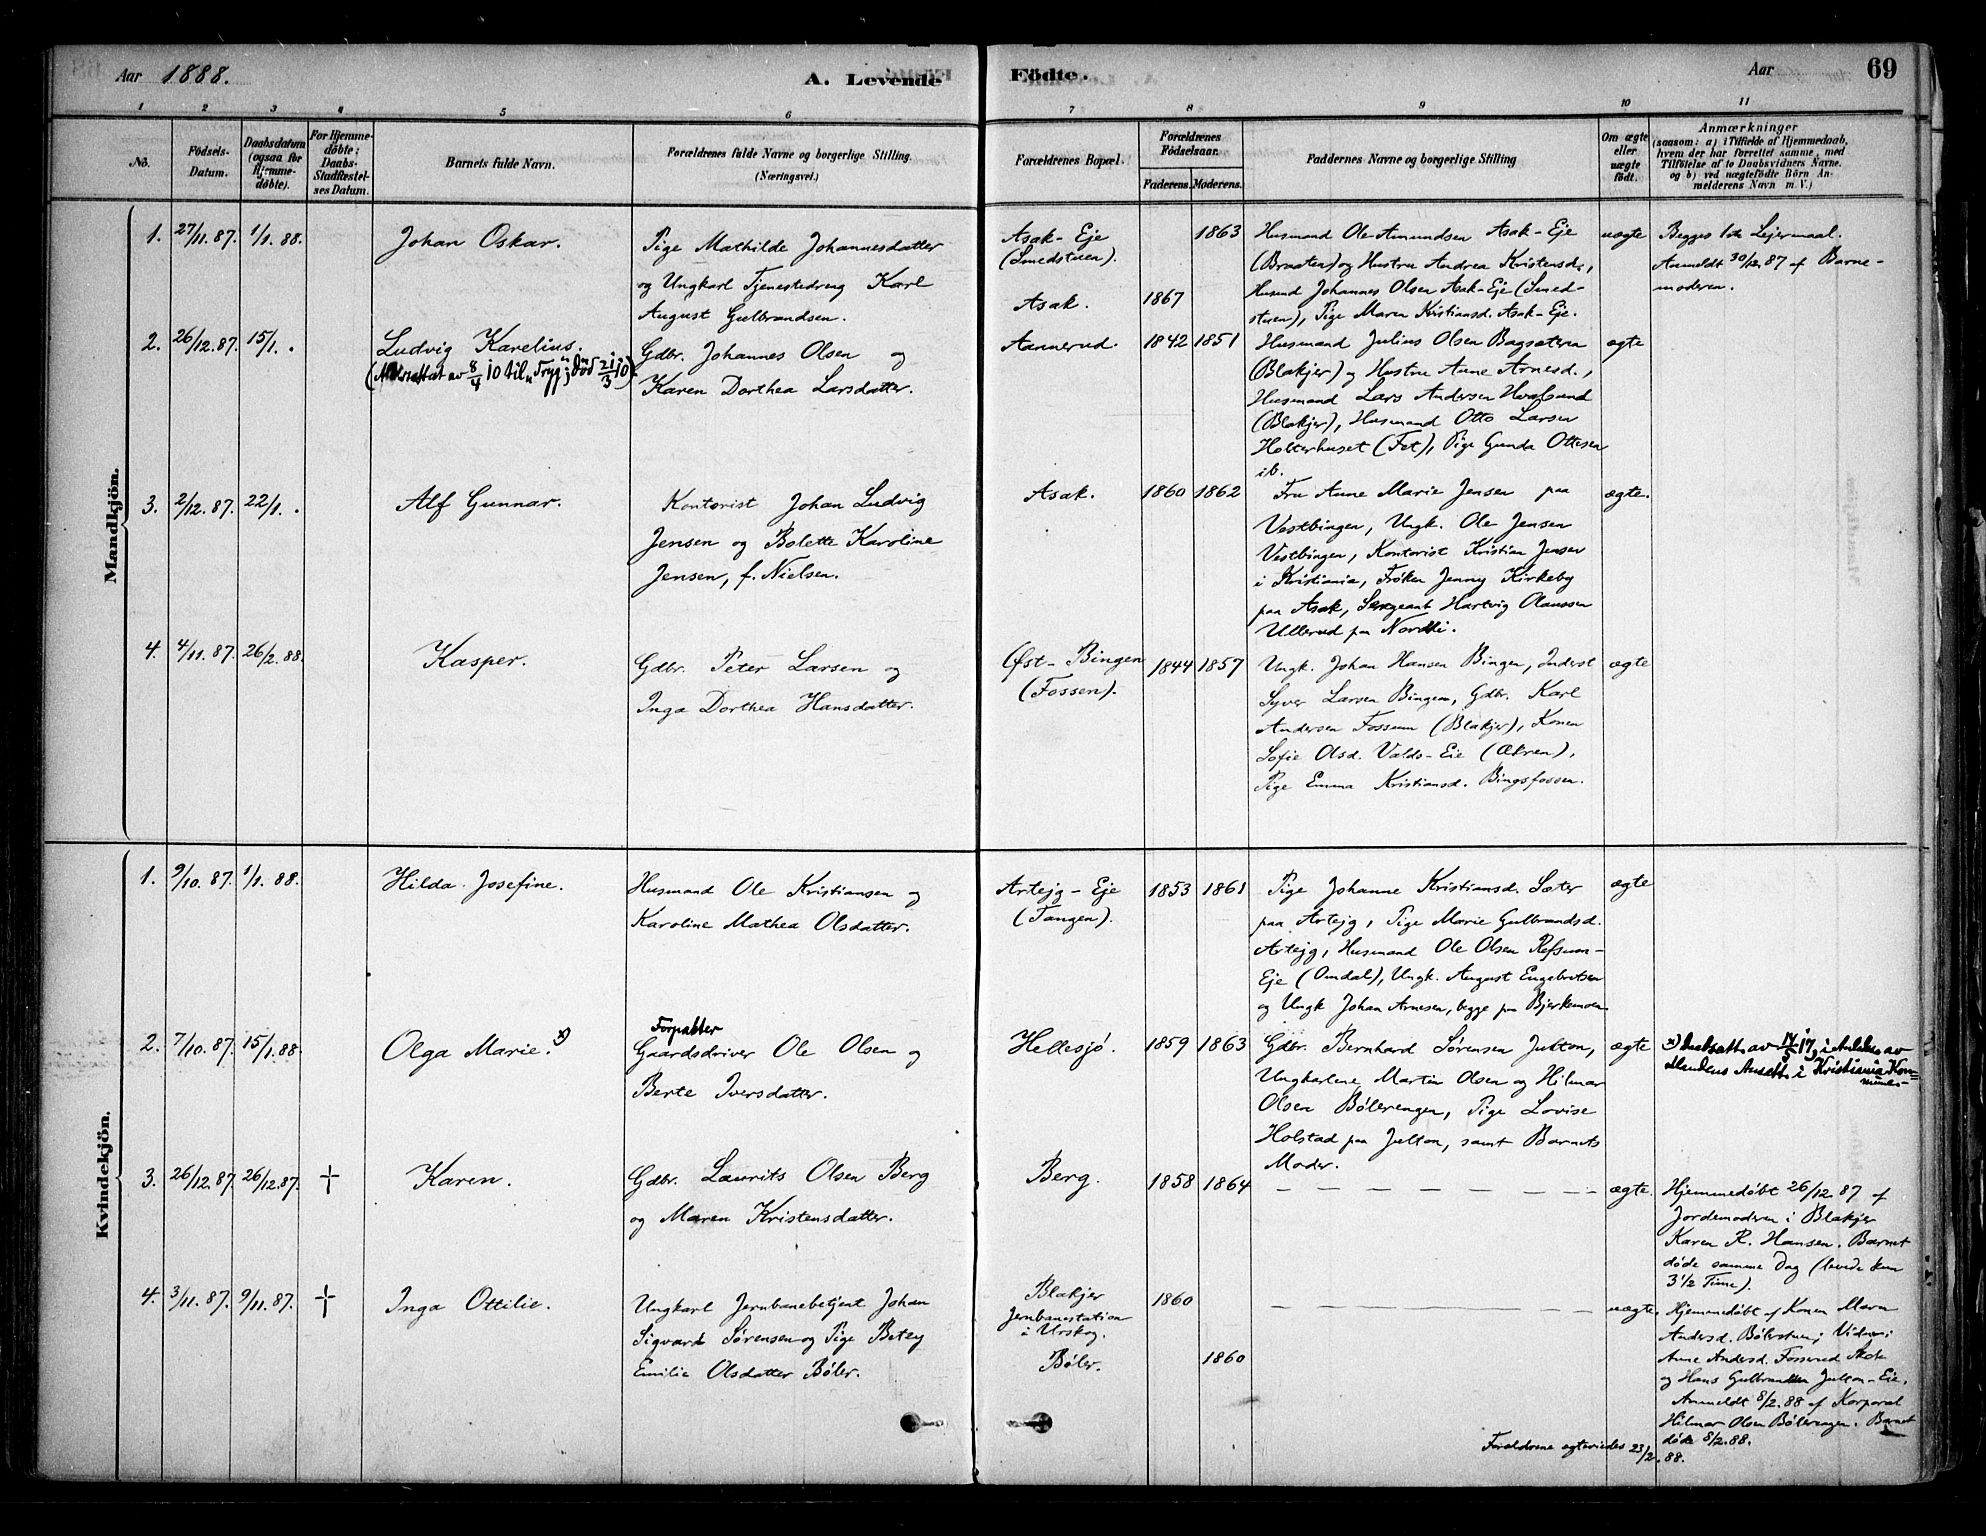 Aar 1888.
A. Levende
Födte.
Aar
69
1 2 3 4 5 6 7 8 9 10 11
No.
Födsels-Datum.
Daabsdatum (ogsaa for Hjemme-döbte).
For Hjemme-döbte; Daabs-Stadfæstel-ses Datum.
Barnets fulde Navn.
Forældrenes fulde Navne og borgerlige Stilling.
(Næringsvei.)
Forældrenes Bopæl.
Forældrenes Födselsaar.
Faderens. Moderens.
Faddernes Navne og borgerlige Stilling
Om ægte eller uægte födt.
Anmærkninger
(saasom: a) i Tilfælde af Hjemmedaab,
hvem der har forrettet samme, med
Tilföielse af to Daabsvidners Navne.
og b) ved uægtefödte Börn An-
melderens Navn m. V.)
Mandkjön.
1. 27/11.87. 1/1.88. Johan Oskar.
Pige Mathilde Johannesdatter
og Ungkarl Tjenestedreng Karl
August Gulbrandsen.
Asak-Eje
(Smedstuen).
Asak.
1867
1863
Husmand Ole Amundsen Asak-Eje
(Braaten) og Hustru Andrea Kristensd.,
Husmd Johannes Olsen Asak-Eje (Smed-
stuen), Pige Maren Kristiansd. Asak-Eje.
uægte
Begges 1ste Lejermaal.
Anmeldt 30/12.87 af Barne-
moderen.
2. 26/12.87. 15/1. Ludvig Karelius.
av 8/4 10 til "Fryg"; Död 21/3 10)
Gdbr. Johannes Olsen og
Karen Dorthea Larsdatter.
Aannerud. 1842 1851
Husmand Julius Olsen Bagsæteren
(Blakjer) og Hustru Anne Arnesd.,
Husmand Lars Andersen Hvalsund
(Blakjer), Husmand Otto Larsen
Holterhuset (Fet), Pige Gunda Ottesen
ib.
ægte
3. 2/12.87. 22/1. Alf Gunnar.
Kontorist Johan Ludvig
Jensen og Bolette Karoline
Jensen, f. Nielsen.
Asak. 1860 1862
Fru Anne Marie Jensen paa
Vestbingen, Ungk. Ole Jensen
Vestbingen, Kontorist Kristian Jensen
i Kristiania, Frøken Jenny Kirkeby
paa Asak, Sergeant Hartvig Olaussen
Ullerud paa Nordli.
ægte.
4. 4/11.87. 26/2.88. Kasper.
Gdbr. Peter Larsen og
Inga Dorthea Hansdatter.
Øst-Bingen
(Fossen).
1844 1857
Ungk. Johan Hansen Bingen, Inderst
Syver Larsen Bingen, Gdbr. Karl
Andersen Fossum (Blakjer), Konen
Sofie Olsd. Valds-Eie (Økren),
Pige Emma Kristiansd. Bingsfossen.
ægte
Kvindekjön.
1. 9/10.87. 1/1.88. Hilda Josefine.
Husmand Ole Kristiansen og
Karoline Mathea Olsdatter.
Artejg-Eje
(Tangen).
1853 1861
Pige Johanne Kristiansd. Sæter
paa Artejg, Pige Marie Gulbrandsd.
Artejg, Husmand Ole Olsen Refsum-
Eje (Omdal), Ungk. August Engebretsen
og Ungk Johan Arnesen, begge paa Bjerkemoen
ægte
2. 7/10.87. 15/1.88. Olga Marie. x)
Forpakter
Gaardsdriver Ole Olsen og
Berte Iversdatter.
Hellesjø. 1859 1863
Gdbr. Bernhard Sørensen Julton,
Ungkarlene Martin Olsen og Hilmar
Olsen Bølerengen, Pige Lovise
Holstad paa Julton, samt Barnets
Moder.
ægte
x) av 17, i Anledn. av
i Kristiania Kom=
mune.
3. 26/12.87. 26/12.87. † Karen.
Gdbr. Laurits Olsen Berg
og Maren Kristensdatter.
Berg. 1858 1864
— — — — — — —
ægte.
Hjemmedøbt 26/12.87 af
Jordemoderen i Blakjer
Karen R. Hansen. Barnet
døde samme Dag (levede kun
3½ Time).
4. 3/11.87. 9/11.87. † Inga Ottilie.
Ungkarl Jernbanebetjent Johan
Sigvard Sørensen og Pige Betzy
Emilie Olsdatter Bøler.
Blakjer
Jernbanestation
i Urskog.
Bøler.
1860
1860
— — — — — — —
uægte.
Hjemmedøbt af Konen Maren
Andersd. Bølerstuen; Vidner:
Anne Andersd. Fosserud
og Hans Gulbrandsen Julton-Eie.
Anmeldt 8/2.88 af Korporal
Hilmar Olsen Bølerengen. Barnet
døde 8/2.88.
Forældrene ægteviedes 23/2.88.